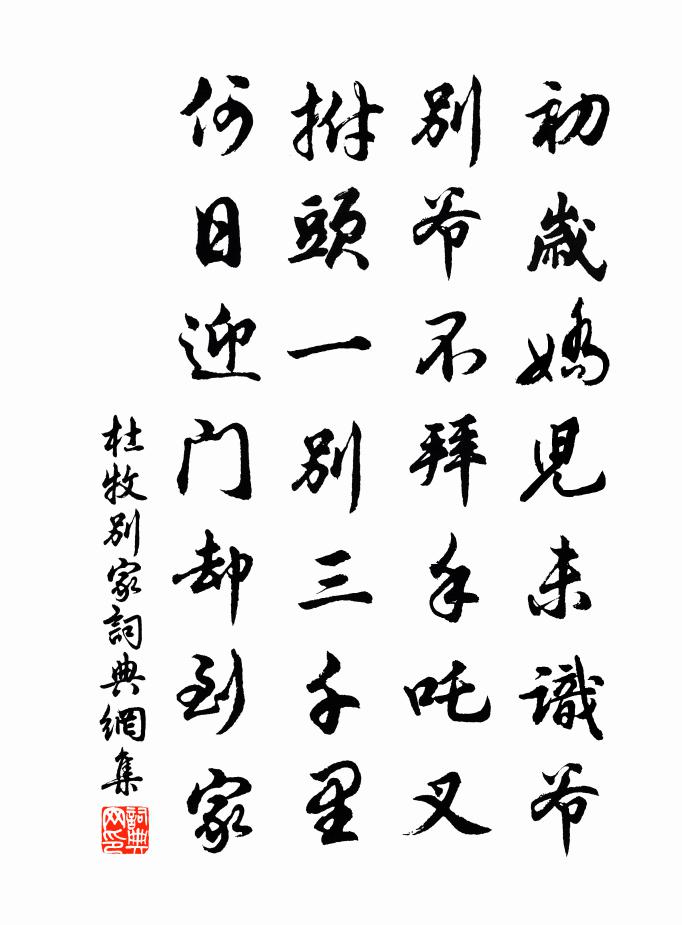 初歲嬌兒未識爷
別爷不拜手吒叉
拊頭一別三千里
何日迎门却到家
杜牧別家詞典網集
詞典网印